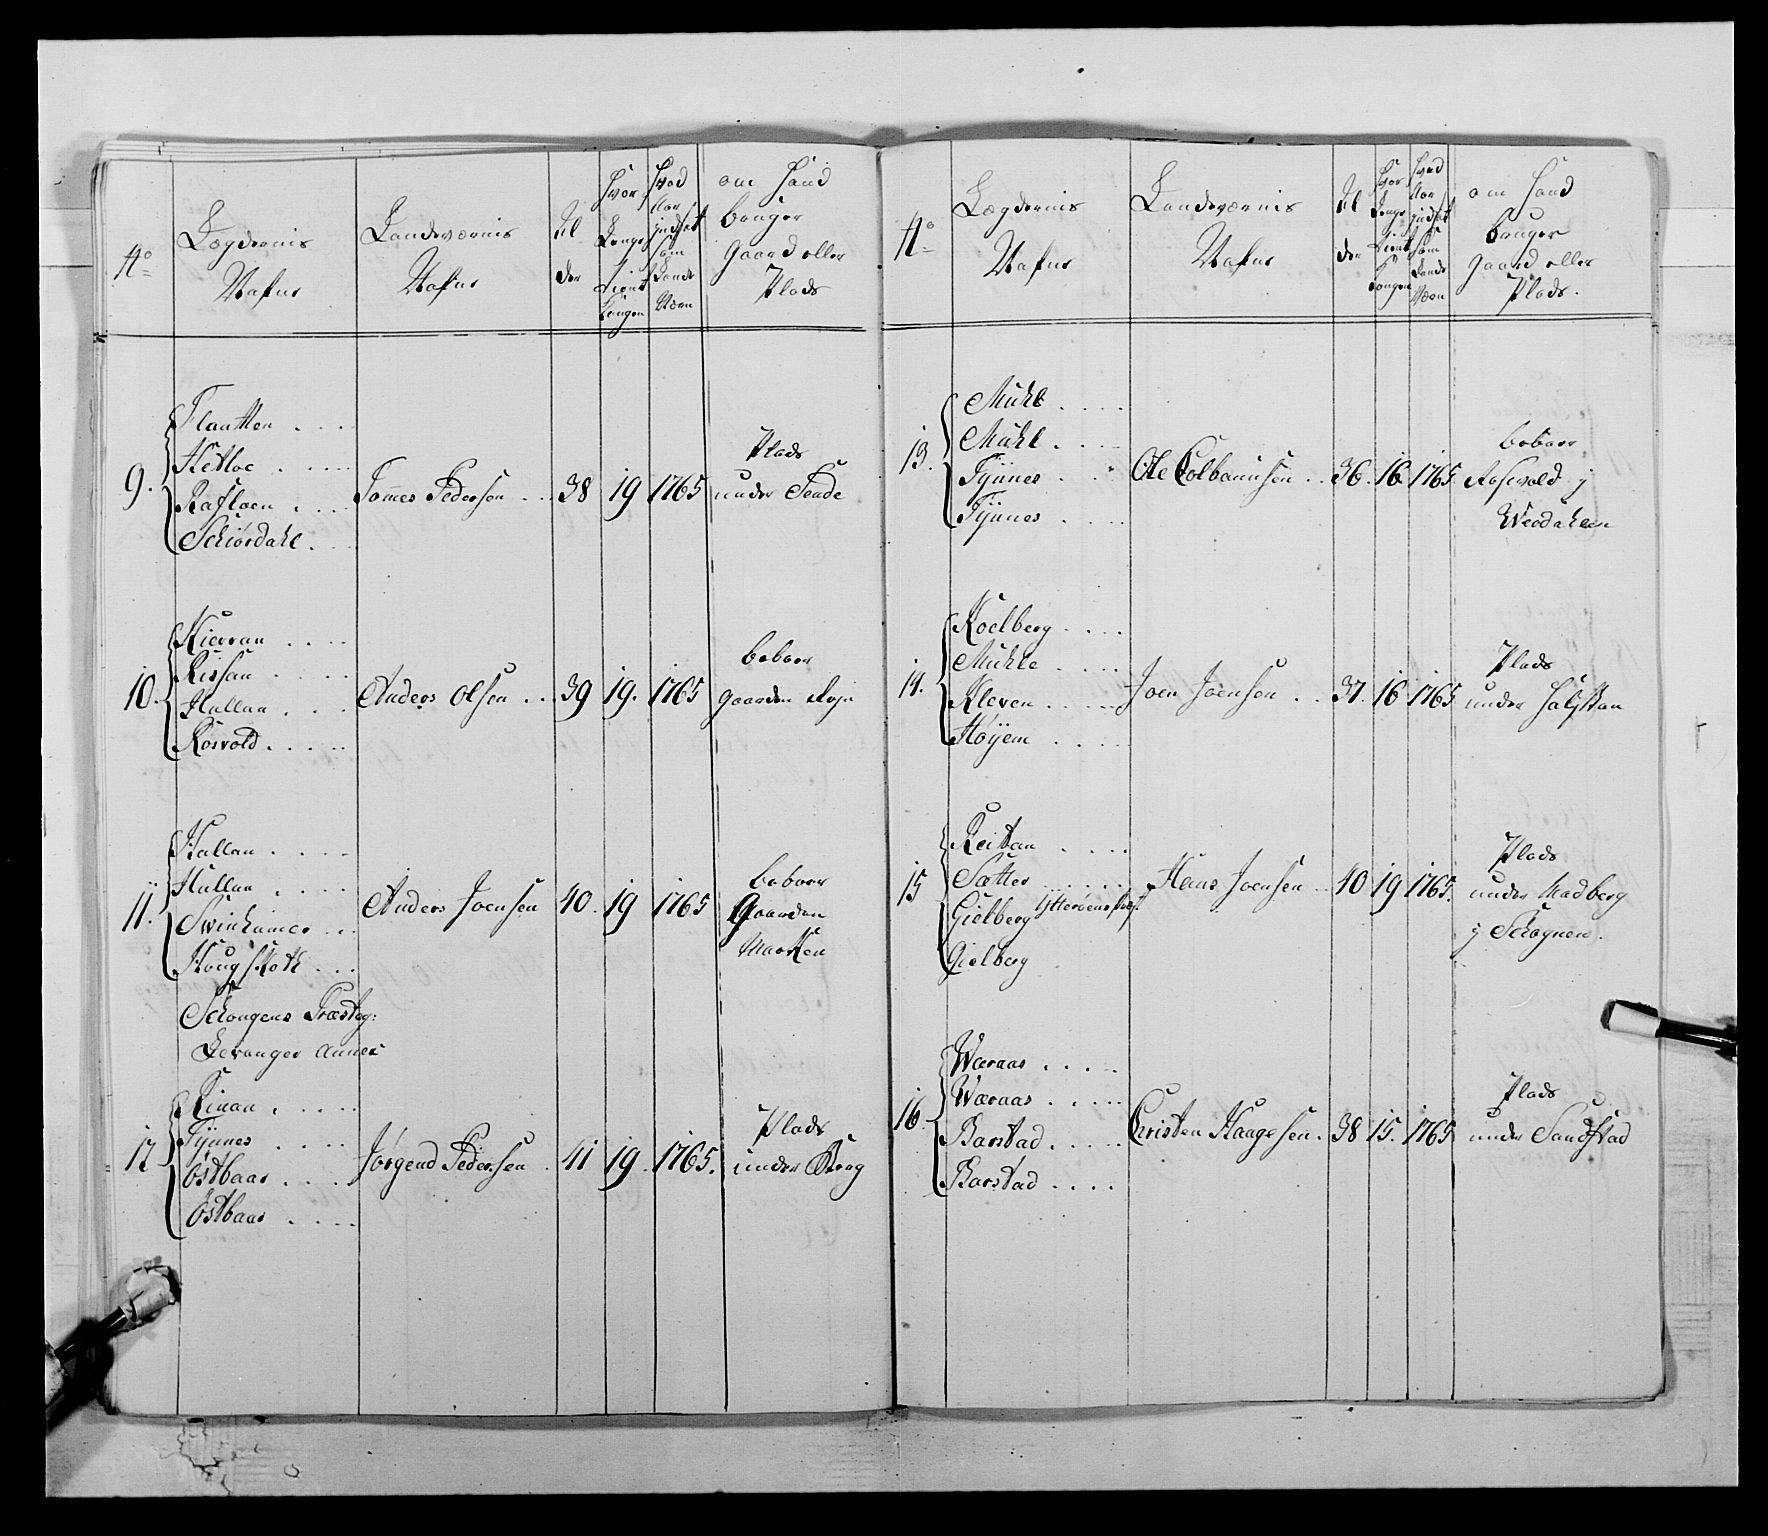 No
Lægdernis
Nafne
Landeværnis
Nafne
Al
der
Hvor
Lenge
tient
Kongen
Hvad
Aar
indsat
som
Lands
Værn
om Hand
bruger
gaard eller
Plads
9.
Flaatten . . . .
Hetloe . . . . .
Rafloen . . . .
Schiørdahl . . .
Tomes Pedersen . .
38
19
1765
Plads
under Tende
10.
Kierran . . . .
Rissan . . . .
Hallan . . . .
Rosvold . . . . .
Anders Olsen . . .
39
19.
1765
beboer
gaarden
11.
Hallan . . . .
Hallan . . . .
Svinhamer . . .
Hougskott . . .
Anders Joensen
40.
19
1765
beboer
Gaarden
Marken
Schongens Præsteg:
Levanger Annex
12
Rinan . . . . .
Tynnes . . . .
Østbaar . . . .
Østbaar . . . .
Jørgend Pedersen .
41
19.
1765.
Plads
under Borg
No
Lægdernis
Nafne
Landeværnis
Nafne
Al
der
Hvor
Lenge
tient
Kongen
Hvad
Aar
indsat
som
Lands
Værn
om Hand
bruger
gaard eller
Plads.
13.
Muhle . . . .
Muhl . . . .
Tynnes . . .
Tynnes . . . .
Ole Colbannsen . .
36.
16.
1765
beboer
Rosvold j
Werdahlen
14.
Koelberg . . . .
Muhle . . . .
Kleven . . . . .
Høyem . . . .
Joen Joensen . .
37.
16
1765
Plads
under Halsstan
15
Reitan . . . .
Sætter . . . . .
Gielberg Ytterøens præst
Gielberg
Hans Joensen . .
40
19
1765.
Plads
under Nadberg
j Schognen.
16.
Waraas . . . .
Waraas . . . .
Barstad . . . .
Barstad . . . .
Christen Haagesen .
38
15.
1765
Plads
under Sandstad